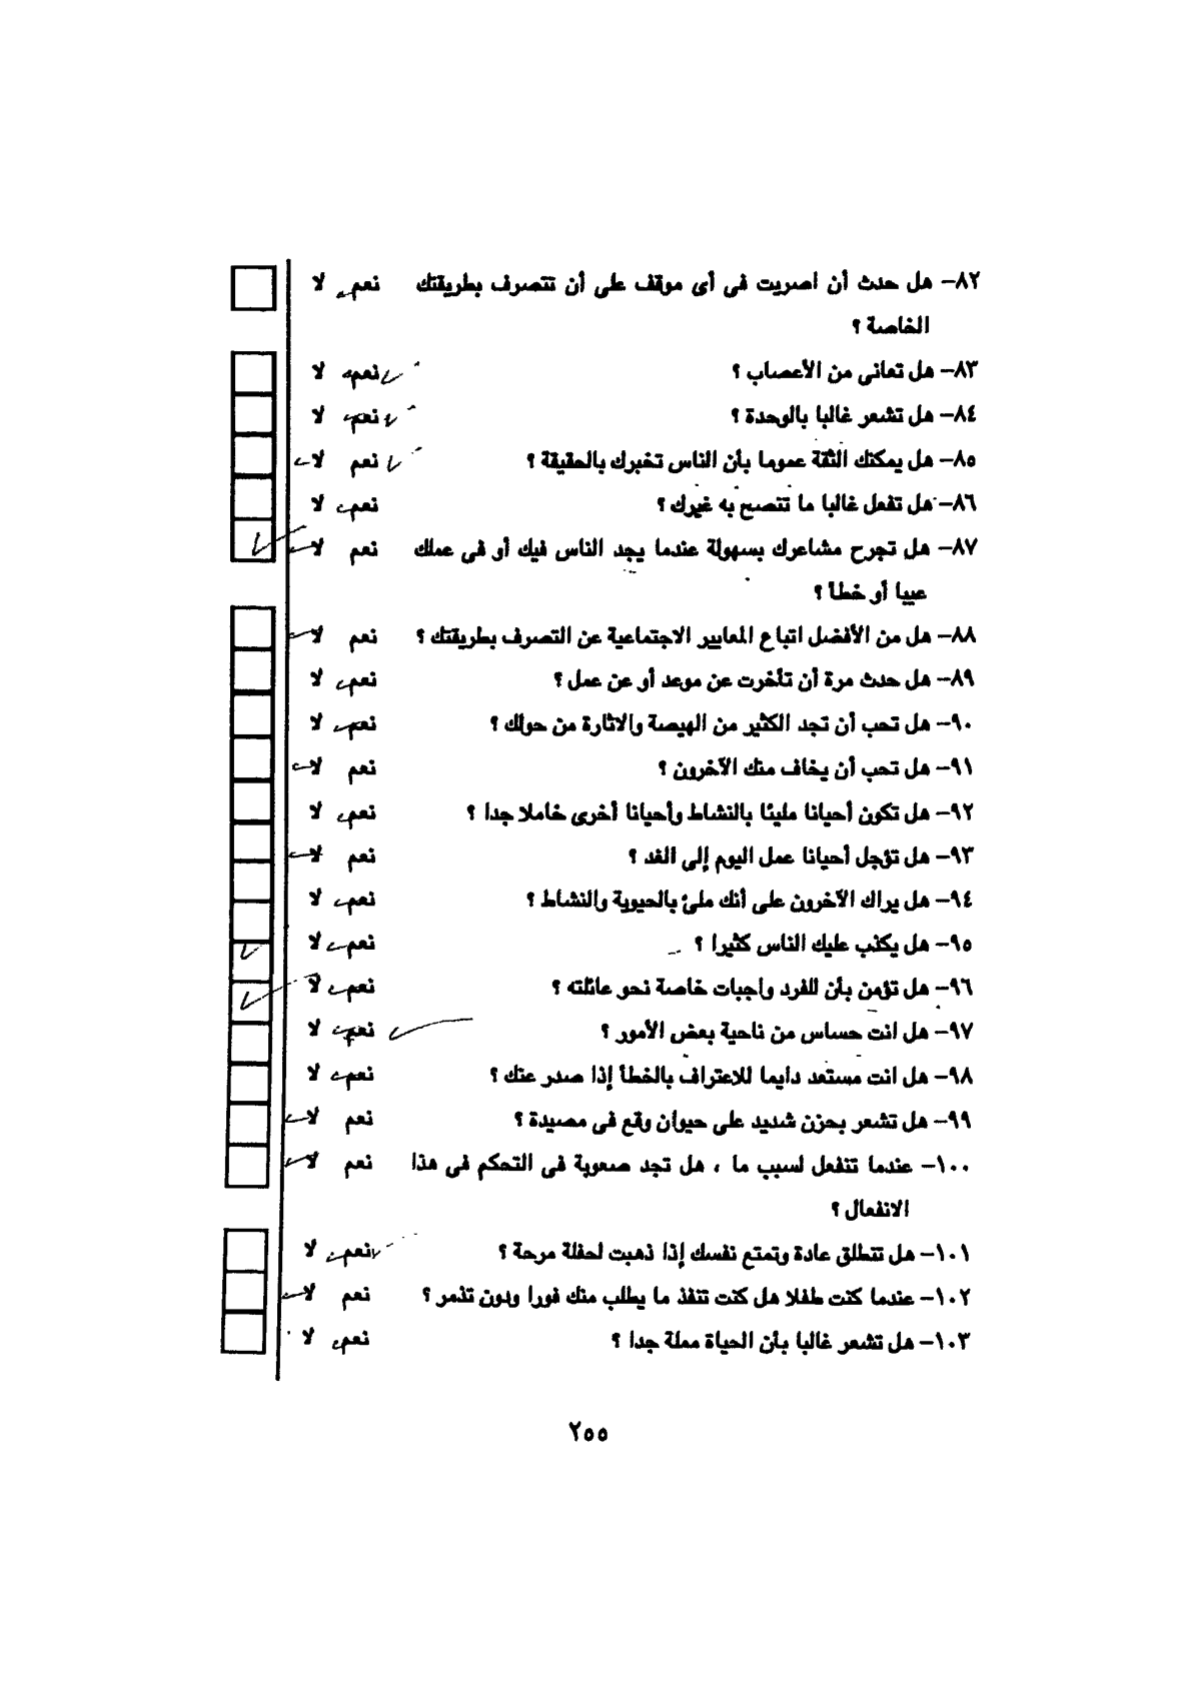 ٨٢- هل حدث أن اصريت فى أى موقف على أن تتصرف بطريقتك نعم لا
الخاصة ؟
٨٣- هل تعانى من الأعصاب ؟ نعم لا
٨٤- هل تشعر غالبا بالوحدة ؟ نعم لا
٨٥- هل يمكنك الثقة عموما بأن الناس تخبرك بالحقيقة ؟ نعم لا
٨٦- هل تفعل غالبا ما تتصح به غيرك ؟ نعم لا
٨٧- هل تجرح مشاعرك بسهولة عندما يجد الناس فيك أو فى عملك نعم لا
عيبا أو خطأ ؟
٨٨- هل من الأفضل اتباع المعايير الاجتماعية عن التصرف بطريقتك ؟ نعم لا
٨٩- هل حدث مرة أن تأخرت عن موعد أو عن عمل ؟ نعم لا
٩٠- هل تحب أن تجد الكثير من الهيصة والاثارة من حولك ؟ نعم لا
٩١- هل تحب أن يخاف منك الآخرون ؟ نعم لا
٩٢- هل تكون أحيانا مليئا بالنشاط وأحيانا أخرى خاملا جدا ؟ نعم لا
٩٣- هل تؤجل أحيانا عمل اليوم إلى الغد ؟ نعم لا
٩٤- هل يراك الآخرون على أنك ملئ بالحيوية والنشاط ؟ نعم لا
٩٥- هل يكذب عليك الناس كثيرا ؟ نعم لا
٩٦- هل تؤمن بأن للفرد واجبات خاصة نحو عائلته ؟ نعم لا
٩٧- هل انت حساس من ناحية بعض الأمور ؟ نعم لا
٩٨- هل انت مستعد دايما للاعتراف بالخطأ إذا صدر عنك ؟ نعم لا
٩٩- هل تشعر بحزن شديد على حيوان وقع فى مصيدة ؟ نعم لا
١٠٠- عندما تنفعل لسبب ما ، هل تجد صعوبة فى التحكم فى هذا نعم لا
الانفعال ؟
١٠١- هل تتطلق عادة وتمتع نفسك إذا ذهبت لحفلة مرحة ؟ نعم لا
١٠٢- عندما كنت طفلا هل كنت تنفذ ما يطلب منك فورا وبدون تذمر ؟ نعم لا
١٠٣- هل تشعر غالبا بأن الحياة مملة جدا ؟ نعم لا
٢٥٥